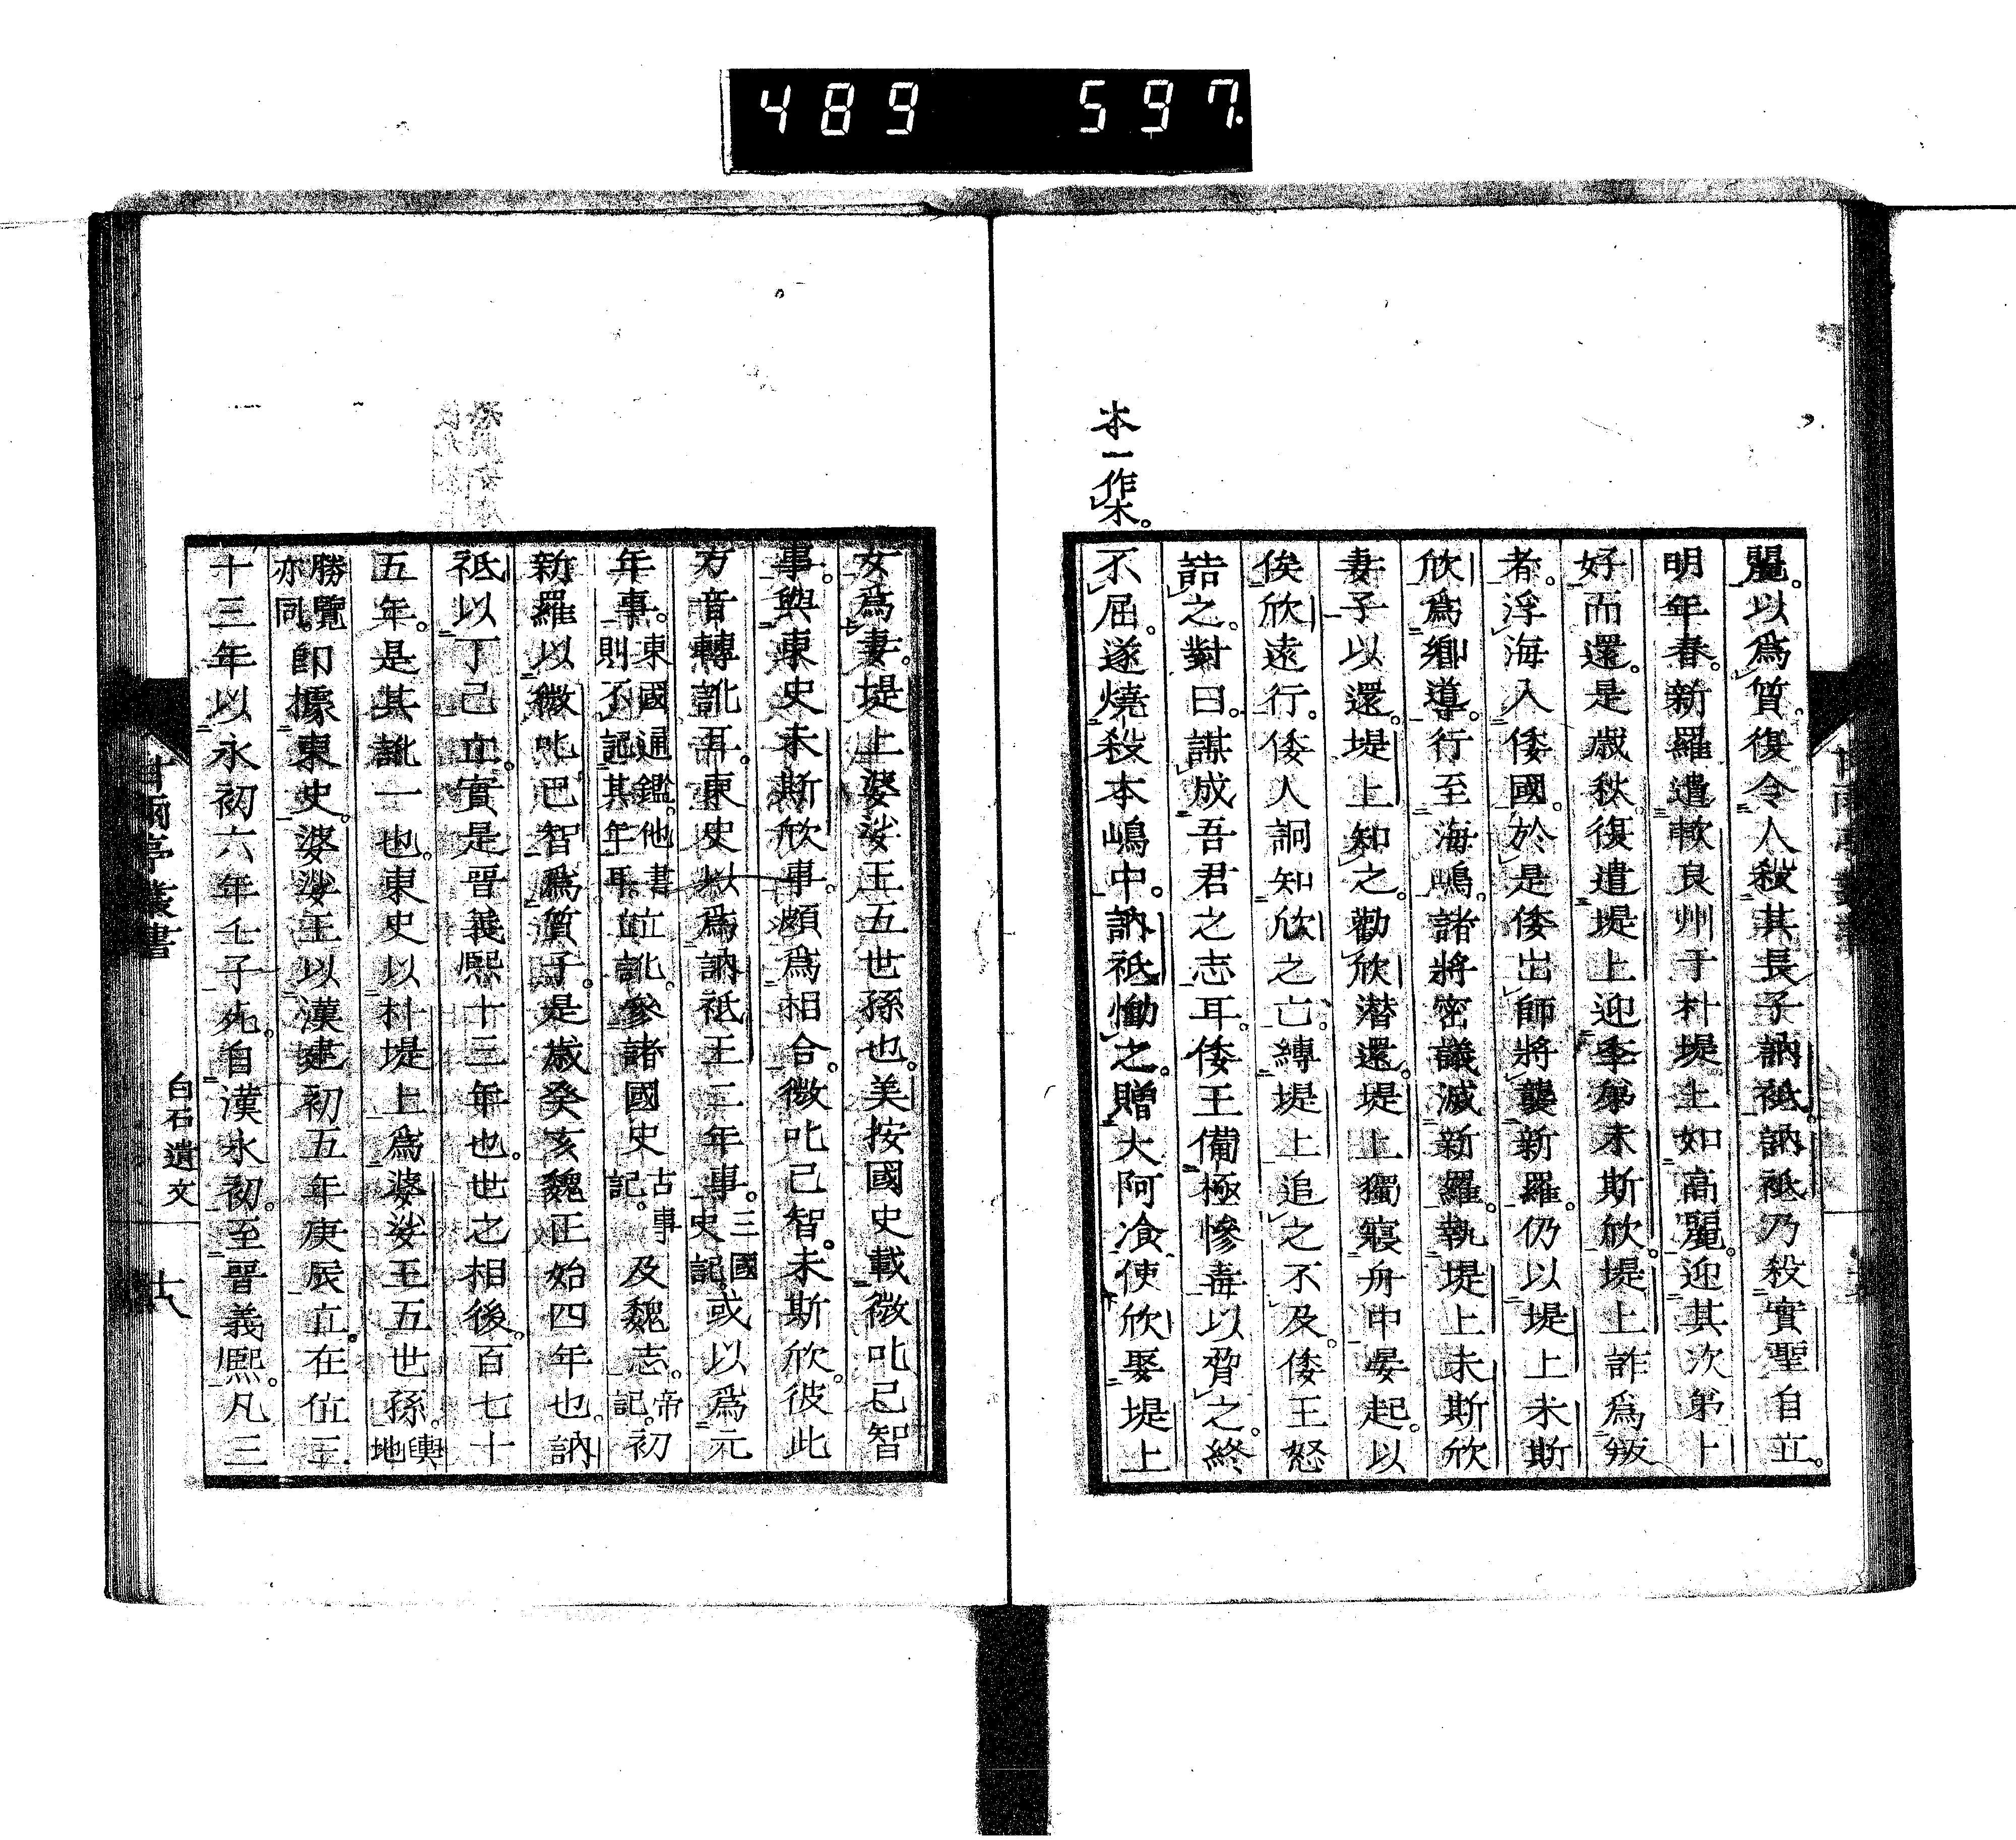 489 597
本一作木。
麗。以爲質。復令人殺其長子訥祗。訥祗乃殺實聖自立。
明年春。新羅遣歃良州于朴堤上如高麗。迎其次第卜
好而還。是歲秋。復遣堤上迎季弟未斯欣。堤上詐爲叛
者。浮海入倭國。於是倭出師將襲新羅。仍以堤上未斯
欣爲鄉導。行至海嶋。諸將密議滅新羅。執堤上未斯欣
妻子以還。堤上知之。勸欣潛還。堤上獨寢舟中晏起。以
俟欣遠行。倭人詗知欣之亡。縛堤上追之不及。倭王怒
詰之。對曰。謀成吾君之志耳。倭王備極慘毒以脅之。終
不屈。遂燒殺本嶋中。訥祗慟之。贈大阿飡使欣娶堤上
女爲妻。堤上婆娑王五世孫也。美按國史載微叱己智
事。與東史未斯欣事。頗爲相合。微叱己智。未斯欣。彼此
方音轉訛耳。東史以爲訥祗王二年事。三國史記。或以爲元
年事。東國通鑑。他書則不記其年耳。竝訛。參諸國史古事記。及魏志。帝記。初
新羅以微叱巴智爲質子。是歲癸亥魏正始四年也。訥
祗以丁己立。實是晉義熙十三年也。世之相後。百七十
五年。是其訛一也。東史以朴堤上爲婆娑王五世孫。輿地
勝覽亦同。卽據東史。婆娑王以漢建初五年庚辰立。在位三
十三年以永初六年壬子死。自漢永初。至晉義熙。凡三
甘雨亭叢書
白石遺文
十八
甘雨亭叢書